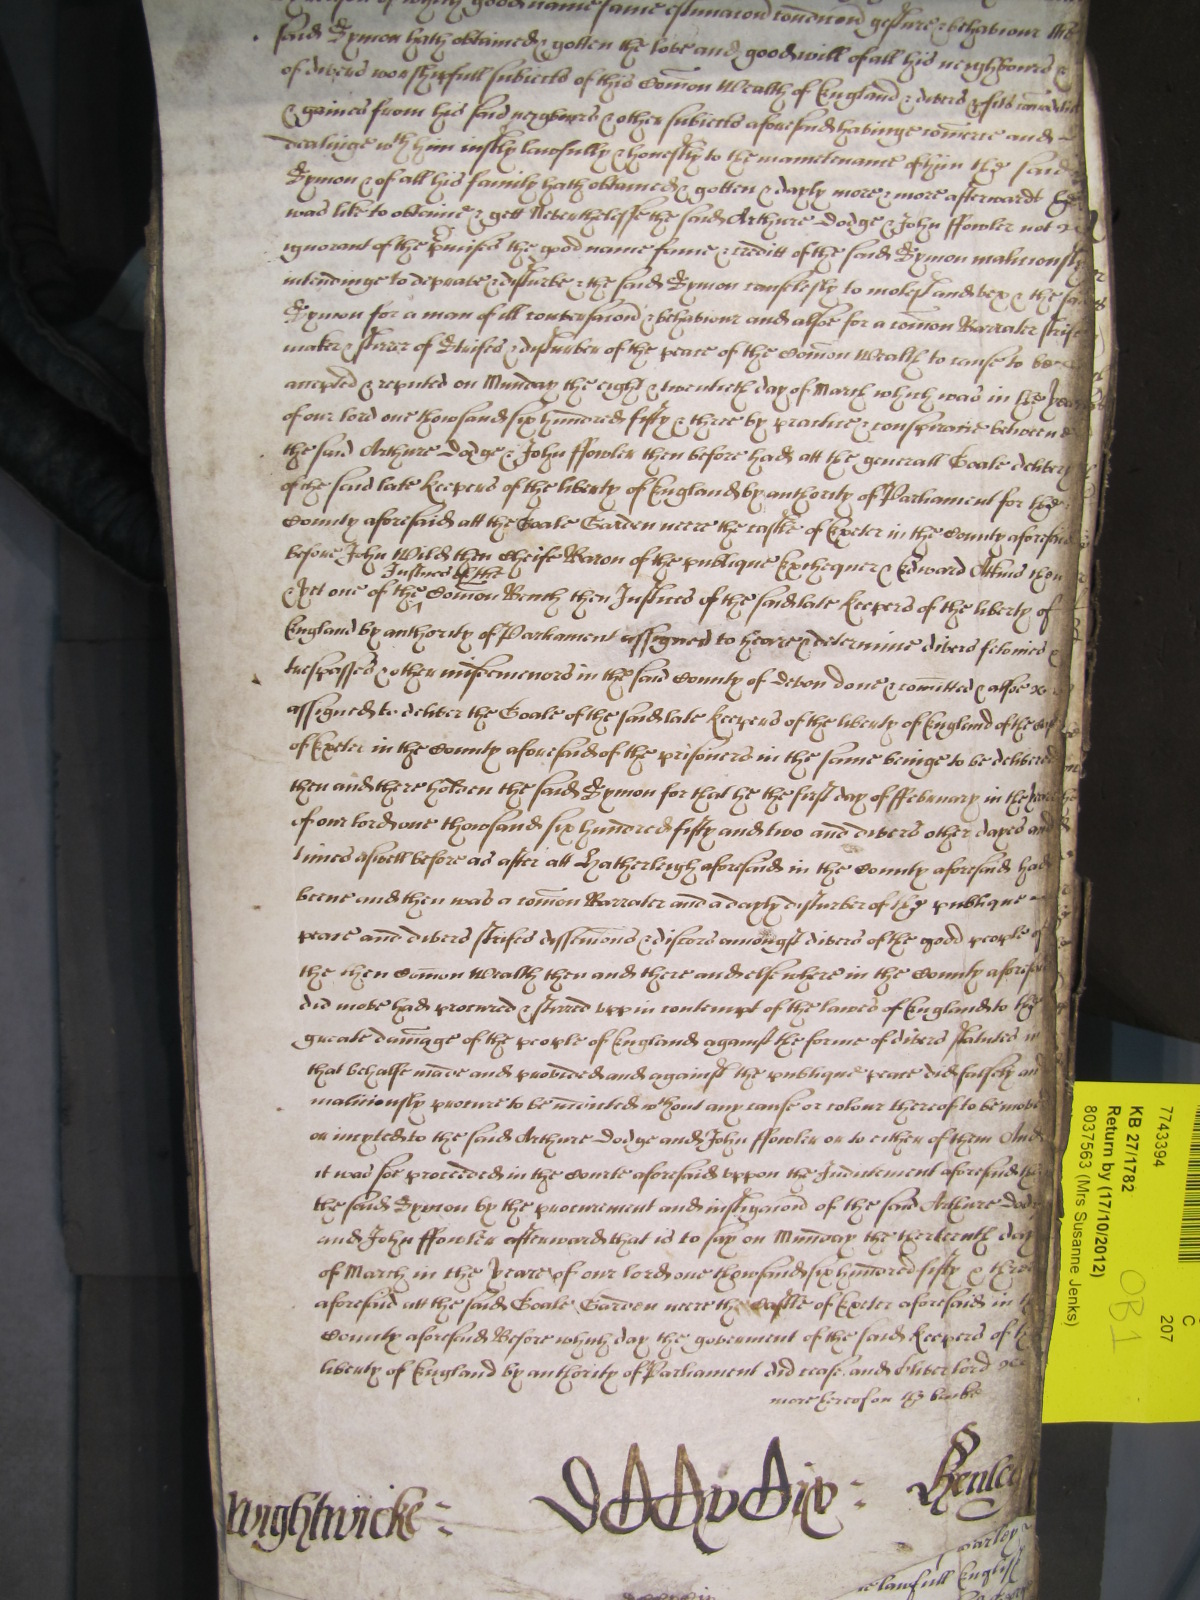 good name fame estimacon condicon gesture & behaviour the
said Symon hath obtained & gotten the love and good will of all his neighbours &
of divers worshipfull subiects of this Comon Wealth of England & divers
& gaines from his said neighbors & other subiects aforesaid havinge comerce and
dealinge wth him iustly lawfully & honestly to the maintenance of him the said
Symon & of all his family hath obtained & gotten & dayly more & more afterwards he
was like to obteine & gett Neverthelesse the said Arthure Dodge & John ffowler not
ignorant of the pmises the good name fame & creditt of the said Symon malitiously
intendinge to deprave & disturbe & the said Symon causlesly to molest and vex & the said
Symon for a man of ill conversacon & behaviour and alsoe for a comon Barrater strife
maker & stirrer of strifes & disturber of the peace of the Comon Wealth to cause to be
accepted & reputed on Munday the eight & twentieth day of March which was in the yeare
of our lord one thowsand six hundred fifty & three by practice & conspiracie betweene
the said Arthure Dodge & John ffowler then before had att the generall Goale delivery
of the said late keepers of the liberty of England by authority of Parliament for the
County aforesaid att the Goale Garden neere the castle of Exeter in the County aforesaid
before John Wild then Cheife Baron of the publique Exchequer & Edward Atkins then
Justices of the
& yet one of the Comon Bench then Justices of the said late keepers of the liberty of
England by authority of Parliament assigned to heare & determine divers felonies &
trespasses & other misdemenors in the said County of Devon done & comitted & alsoe
assigned to deliver the Goale of the said late keepers of the liberty of England of the
of Exeter in the County aforesaid of the prisoners in the same beinge to be delivered
then and there holden the said Symon for that he the first day of ffebruary in the yeare
of our lord one thowsand six hundred fifty and two and divers other dayes and
times aswell before as after att Hatherleigh aforesaid in the County aforesaid had
beene and then was a comon Barrater and a dayly disturber of the publique
peace and divers strifes dissencons & discors amongst divers of the good people of
the then Comon Wealth then and there and elsewhere in the County aforesaid
did move had procured & stirred upp in contempt of the lawes of England to the
greate damage of the people of England against the forme of divers statutes in
that behalfe made and provided and against the publique peace did falsely and
malitiously procure to be indicted without any cause or colour thereof to be moved
or imputed to the said Arthure Dodge and John ffowler or to either of them And
it was soe proceeded in the Courte aforesaid uppon the Indictement aforesaid
the said Symon by the procurement and instigacon of the said Arthure Dodge
and John ffowler afterwards that is to say on Munday the therteenth day
of March in the yeare of our lord one thowsand six hundred fifty & three
aforesaid att the said Goale Garden neere the Castle of Exeter aforesaid in the
County aforesaid Before which day the goverment of the said keepers of the
liberty of England by authority of Parliament did cease and Oliver lord
more hereof on the backe
Wightwicke
Henley
lawfull English
7743394
C
207
KB 27/1782
Return by (17/10/2012)
8037563 (Mrs Susanne Jenks)
OB1